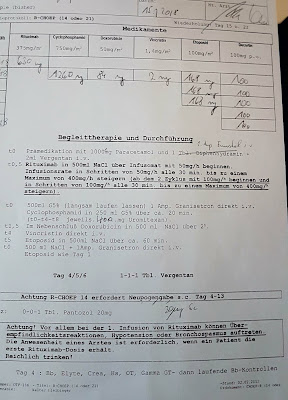 15.3.2018
R-CHOEP (14 oder 21)
Wiederholung: Tag 15 o. 21
Medikamente
Rituximab Cyclophosphamid Doxorubicin Vincristin Etoposid
375mg/m² 750mg/m² 50mg/m² 1,4mg/m² 100mg/m² 100mg p.o.
650 mg
1260 mg 84 mg 2 mg 168 mg 100
168 mg 100
168 mg 100
100
100
Begleittherapie und Durchführung
t0 Prämedikation mit 1000mg Paracetamol und
2mg Vergentan i.v.
t0,5 Rituximab in 500ml NaCl über Infusomat mit 50mg/h beginnen
Infusionsrate in Schritten von 50mg/h alle 30 min. bis zu einem
Maximum von 400mg/h steigern (ab dem 2.Zyklus mit 100mg/h beginnen
und in Schritten von 100mg/h alle 30 min. bis zu einem Maximum von 400mg/h
steigern).
t0 500ml G5% (langsam laufen lassen) 1 Amp. Granisetron direkt i.v.
Cyclophosphamid in 250 ml G5% über ca. 20 min.
t0-t4-t8 jeweils 400 mg Uromitexan
t0,5 Im Nebenschluß Doxorubicin in 500 ml NaCl über 2°.
Vincristin direkt i.v.
Etoposid in 500ml NaCl über ca. 60 min.
500 ml NaCl + 1Amp. Granisetron direkt i.v.
Etoposid wie Tag 1
Tag 4/5/6 1-1-1 Tbl. Vergentan
Achtung R-CHOEP 14 erfordert Neupogengabe s.c. Tag 4-13
0-0-1 Tbl. Pantozol 20mg
Achtung! Vor allem bei der 1. Infusion von Rituximab können Über-
empfindlichkeitsreaktionen, Hypotension oder Bronchospasmus auftreten.
Die Anwesenheit eines Arztes ist erforderlich, wenn ein Patient die
erste Rituximab-Dosis erhält.
Reichlich trinken!
Tag 4 : Bb, Elyte, Crea, Hs, OT, Gamma GT- dann laufende Bb-Kontrollen